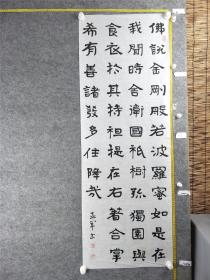 佛說金剛般若波羅蜜如是在
我聞時舍衛國祇樹孤獨園與
食衣於其持袒提在右著合掌
希有善諸發多住降哉